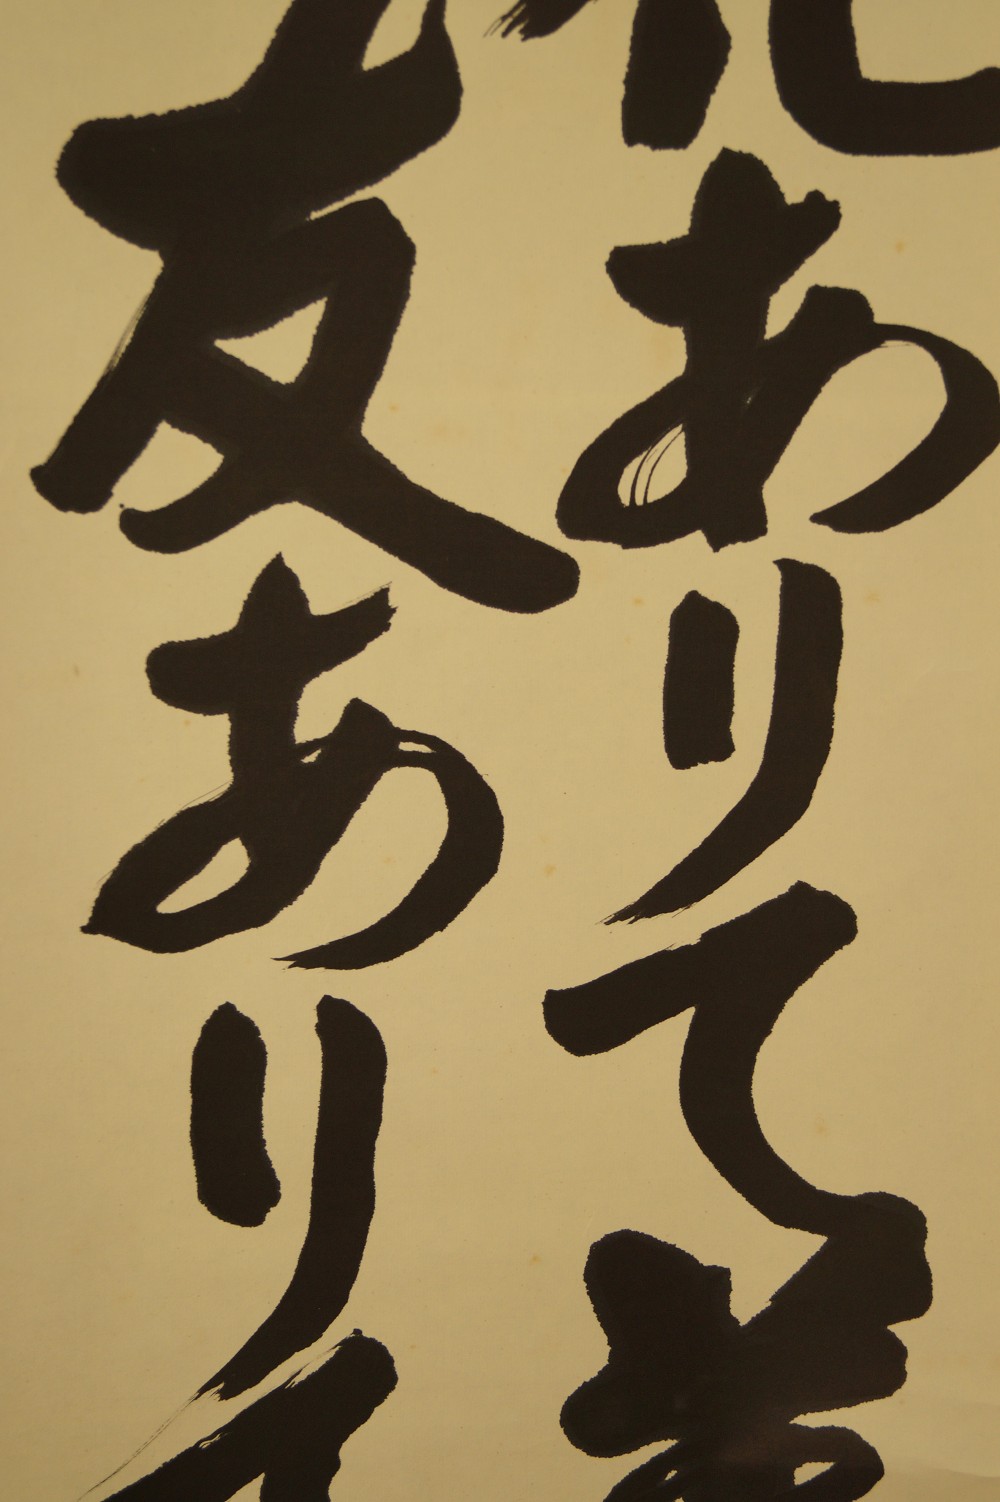 ありて
友ありて